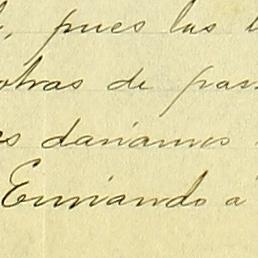 , pues las
otras de pas
daríamos
Enviando a